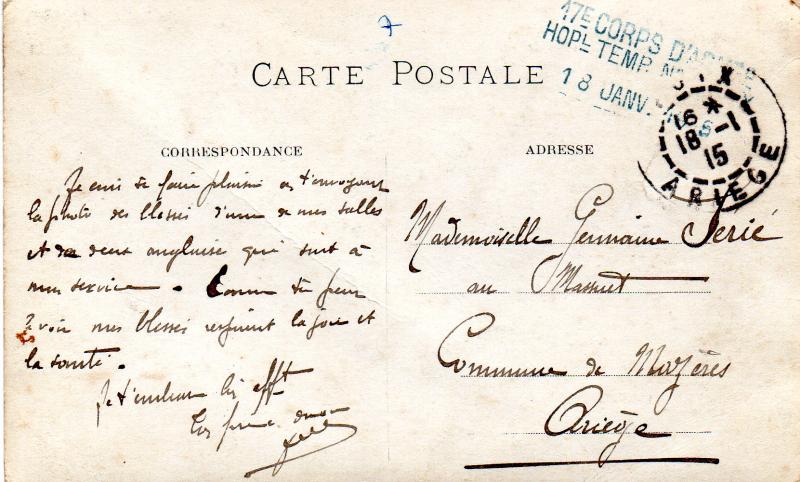 17E CORPS D'ARMÉE
HOPL TEMP. N
18 JANV.
FOIX
16 *
18 -1
15
ARIEGE
CARTE POSTALE
CORRESPONDANCE
Je crois te faire plaisir en t'envoyant
la photo des blessés d'une de mes salles
et de deux anglaises qui sont à
mon service. Comme tu peux
voir mes blessés respirent la joie et
la santé.
Je t'embrasse bien afft
Ton
ADRESSE
Mademoiselle Germaine Serié
au Massuet
Commune de Mazères
Ariège